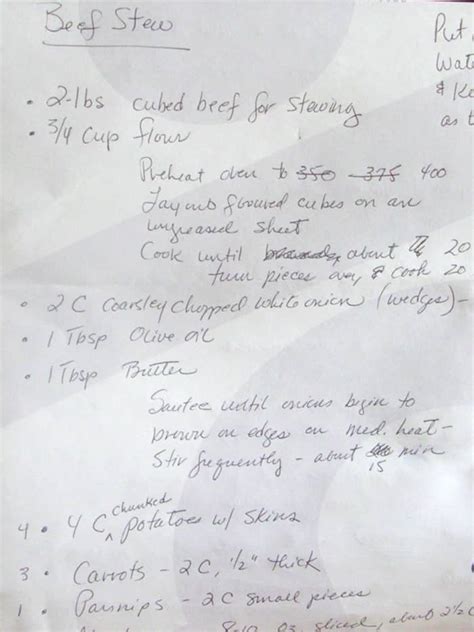 Beef Stew
Put
Wate
& Ke
as t
• 2-lbs cubed beef for stewing
• 3/4 cup flour
Preheat oven to 350 375 400
Layout floured cubes on an
ungreased sheet
Cook until browned, about 20
turn pieces over, & cook 20
• 2 C Coarsley Chopped white onion (wedges) -
• 1 Tbsp Olive oil
• 1 Tbsp Butter
Sautee until onions begin to
brown on edges on med. heat -
Stir frequently - about 15 min
4 • 4 C chunked potatoes w/ skins
3 • Carrots - 2 C, 1/2" thick
1 • Parsnips - 2 C small pieces
8-10 oz. sliced, about 2 1/2 C